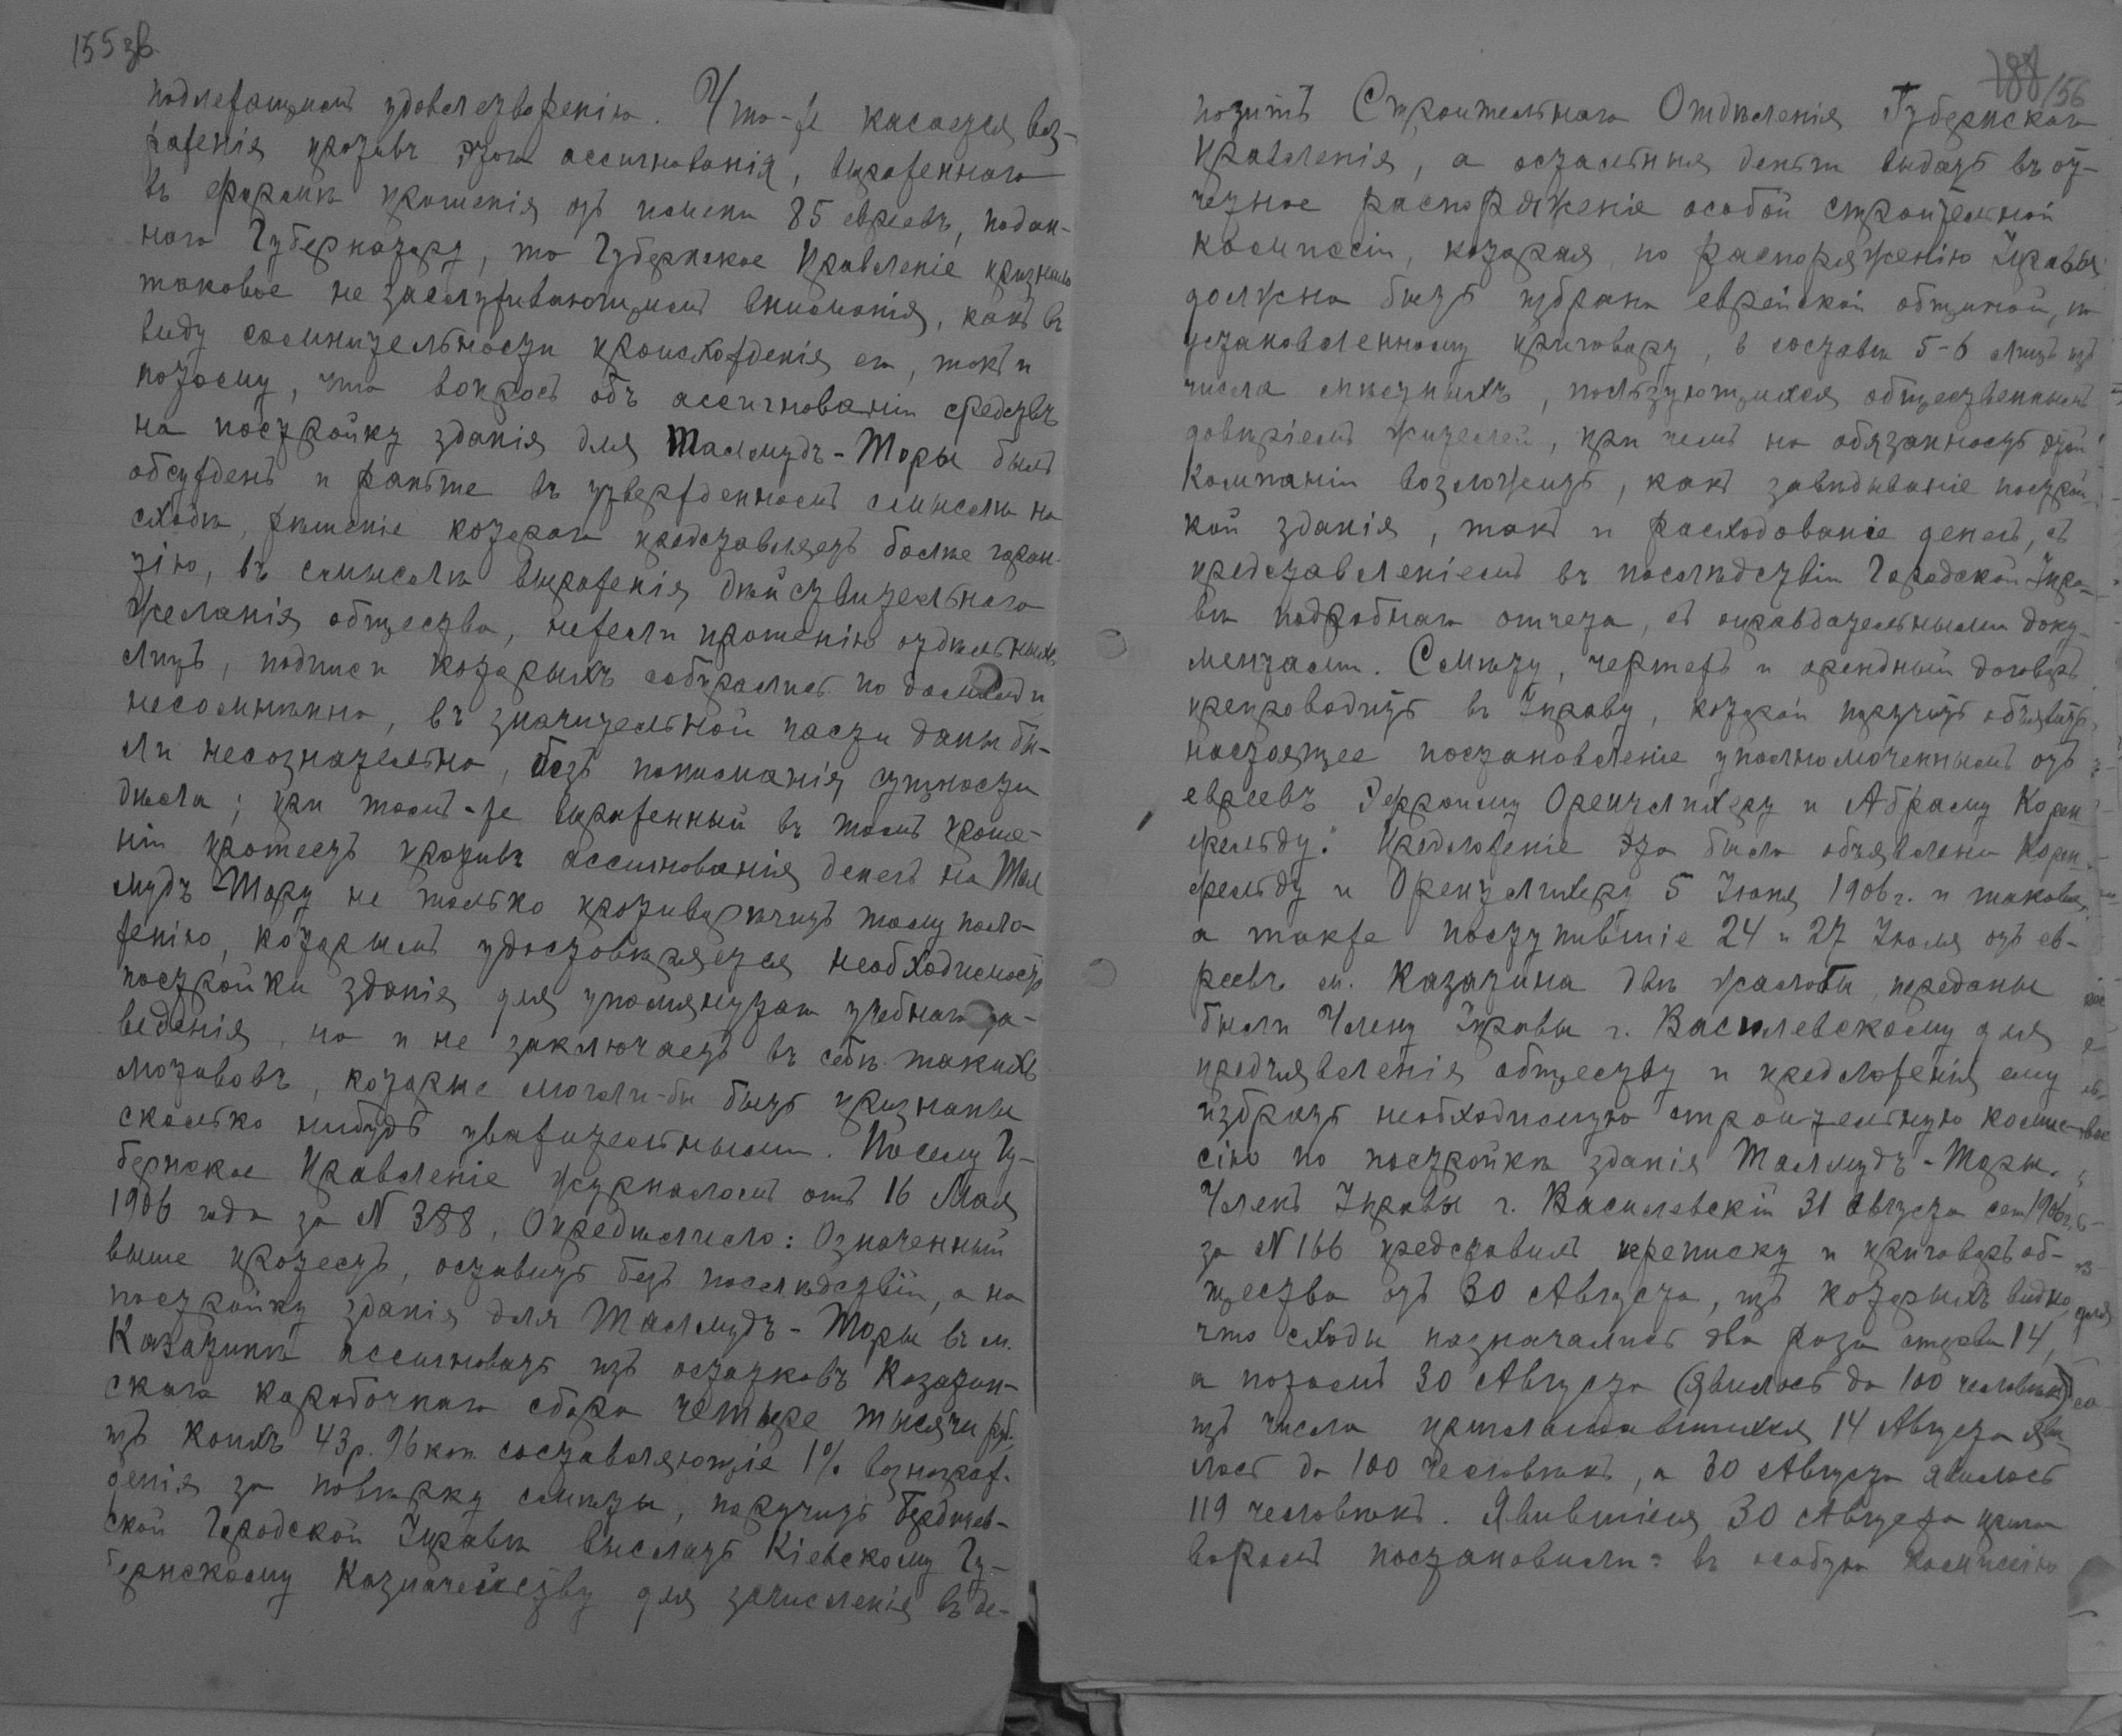 155 зв.
подлежащимъ удовлетворенію. Что-же касается воз-
раженія противъ этого ассигнованія, выраженнаго
въ формѣ прошенія отъ имени 85 евреевъ, подан-
наго Губернатору, то Губернское Правленіе признало
таковое не заслуживающимъ вниманія, какъ въ
виду сомнительности происхожденія его, такъ и
потому, что вопросъ объ ассигнованіи средствъ
на постройку зданія для Талмудъ-Торы былъ
обсужденъ и раньше въ утвержденномъ смыслѣ на
сходѣ, рѣшеніе котораго представляетъ болѣе гаран-
тію, въ смыслѣ выраженія дѣйствительнаго
желанія общества, нежели прошенію отдѣльныхъ
лицъ, подписи которыхъ собирались по домамъ и
несомнѣнно, въ значительной части даны бы-
ли несознательно, безъ пониманія сущности
дѣла; при томъ-же выраженный въ томъ проше-
ніи протестъ противъ ассигнованія денегъ на Тал
мудъ-Тору не только противорѣчитъ тому поло-
женію, которымъ удостовѣряется необходимость
постройки зданія для упомянутаго учебнаго за-
веденія, но и не заключаетъ въ себѣ такихъ
мотивовъ, которые могли-бы быть признаны
сколько нибудь уважительными. Посему Гу-
бернское Правленіе журналомъ отъ 16 Мая
1906 года за N 388, Опредѣлило: Означенный
выше протестъ, оставить безъ послѣдствій, а на
постройку зданія для Талмудъ-Торы въ м.
Казатинѣ ассигновать изъ остатковъ Казатин-
скаго коробочнаго сбора четыре тысячи руб.
изъ коихъ 43 р. 96 коп. составляющіе 1% вознаграж-
денія за повѣрку смѣты, поручить Бердичев-
ской Городской Управѣ выслать Кіевскому Гу-
бернскому Казначейству для зачисленія въ де-
188/156
позитъ Строительнаго Отдѣленія Губернскаго
Правленія, а остальныя деньги выдать въ от-
четное распоряженіе особой строительной
комиссіи, которая, по распоряженію Управы
должна быть избрана еврейской общиной, по
установленному приговору, в составѣ 5-6 лицъ изъ
числа мѣстныхъ, пользующихся общественнымъ
довѣріемъ жителей, при чемъ на обязанность этой
Компаніи возложить, какъ завѣдываніе построй
кой зданія, такъ и расходованіе денегъ, съ
представленіемъ въ послѣдствіи Городской Упра-
вѣ подробнаго отчета, съ оправдательными доку-
ментами. Смѣту, чертежъ и арендный договоръ
препроводить въ Управу, которой поручить объявить
настоящее постановленіе уполномоченнымъ отъ
евреевъ Оренчлихеру и Абраму Корен
фельду." Предложеніе это было объявлено Корен-
фельду и Оренчлихеру 5 Іюня 1906 г. и таковое,
а также поступившіе 24 и 27 Іюля отъ ев-
реевъ м. Казатина двѣ жалобы, переданы
были Члену Управы г. Василевскому для
предъявленія обществу и предложенія ему
избрать необходимую строительную комис-
сію по постройкѣ зданія Талмудъ-Торы.
Членъ Управы г. Василевскій 31 Августа сего 1906 г.
за N 166 представилъ переписку и приговоръ об-
щества отъ 30 Августа, изъ которыхъ видно,
что сходы назначались два раза 14,
а потомъ 30 Августа (явилось до 100 человѣкъ)
изъ числа приглашавшихся 14 Августа яви
лось до 100 человѣкъ, а 30 Августа явилось
119 человѣкъ. Явившіеся 30 Августа приго
воромъ постановили: въ особую комиссію